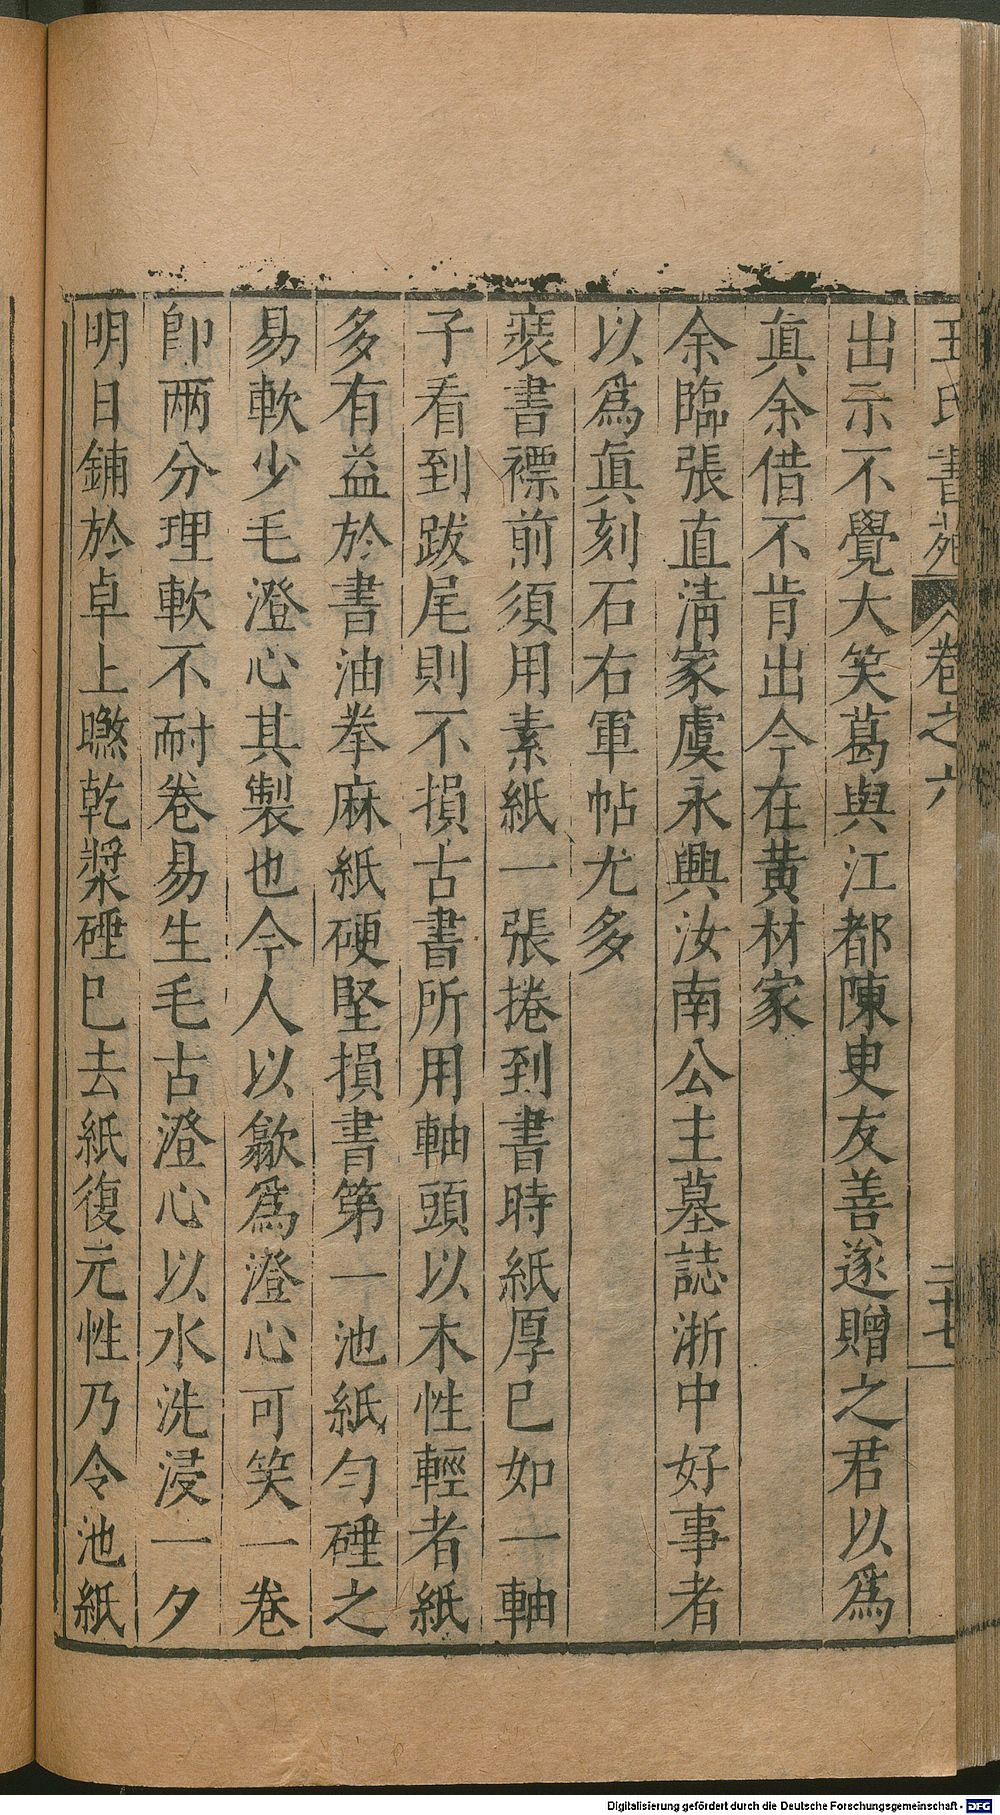 王氏書苑 卷之六 二十七
出示不覺大笑葛與江都陳叓友善遂贈之君以爲
眞余借不肯出今在黃材家
余臨張直淸家虞永興汝南公主墓誌浙中好事者
以爲眞刻石右軍帖尤多
裝書褾前須用素紙一張捲到書時紙厚已如一軸
子看到跋尾則不損古書所用軸頭以木性輕者紙
多有益於書油拳麻紙硬堅損書第一池紙勻硾之
易軟少毛澄心其製也今人以歙爲澄心可笑一卷
卽兩分理軟不耐卷易生毛古澄心以水洗浸一夕
明日鋪於卓上㬠乾漿硾已去紙復元性乃令池紙
Digitalisierung gefördert durch die Deutsche Forschungsgemeinschaft - DFG